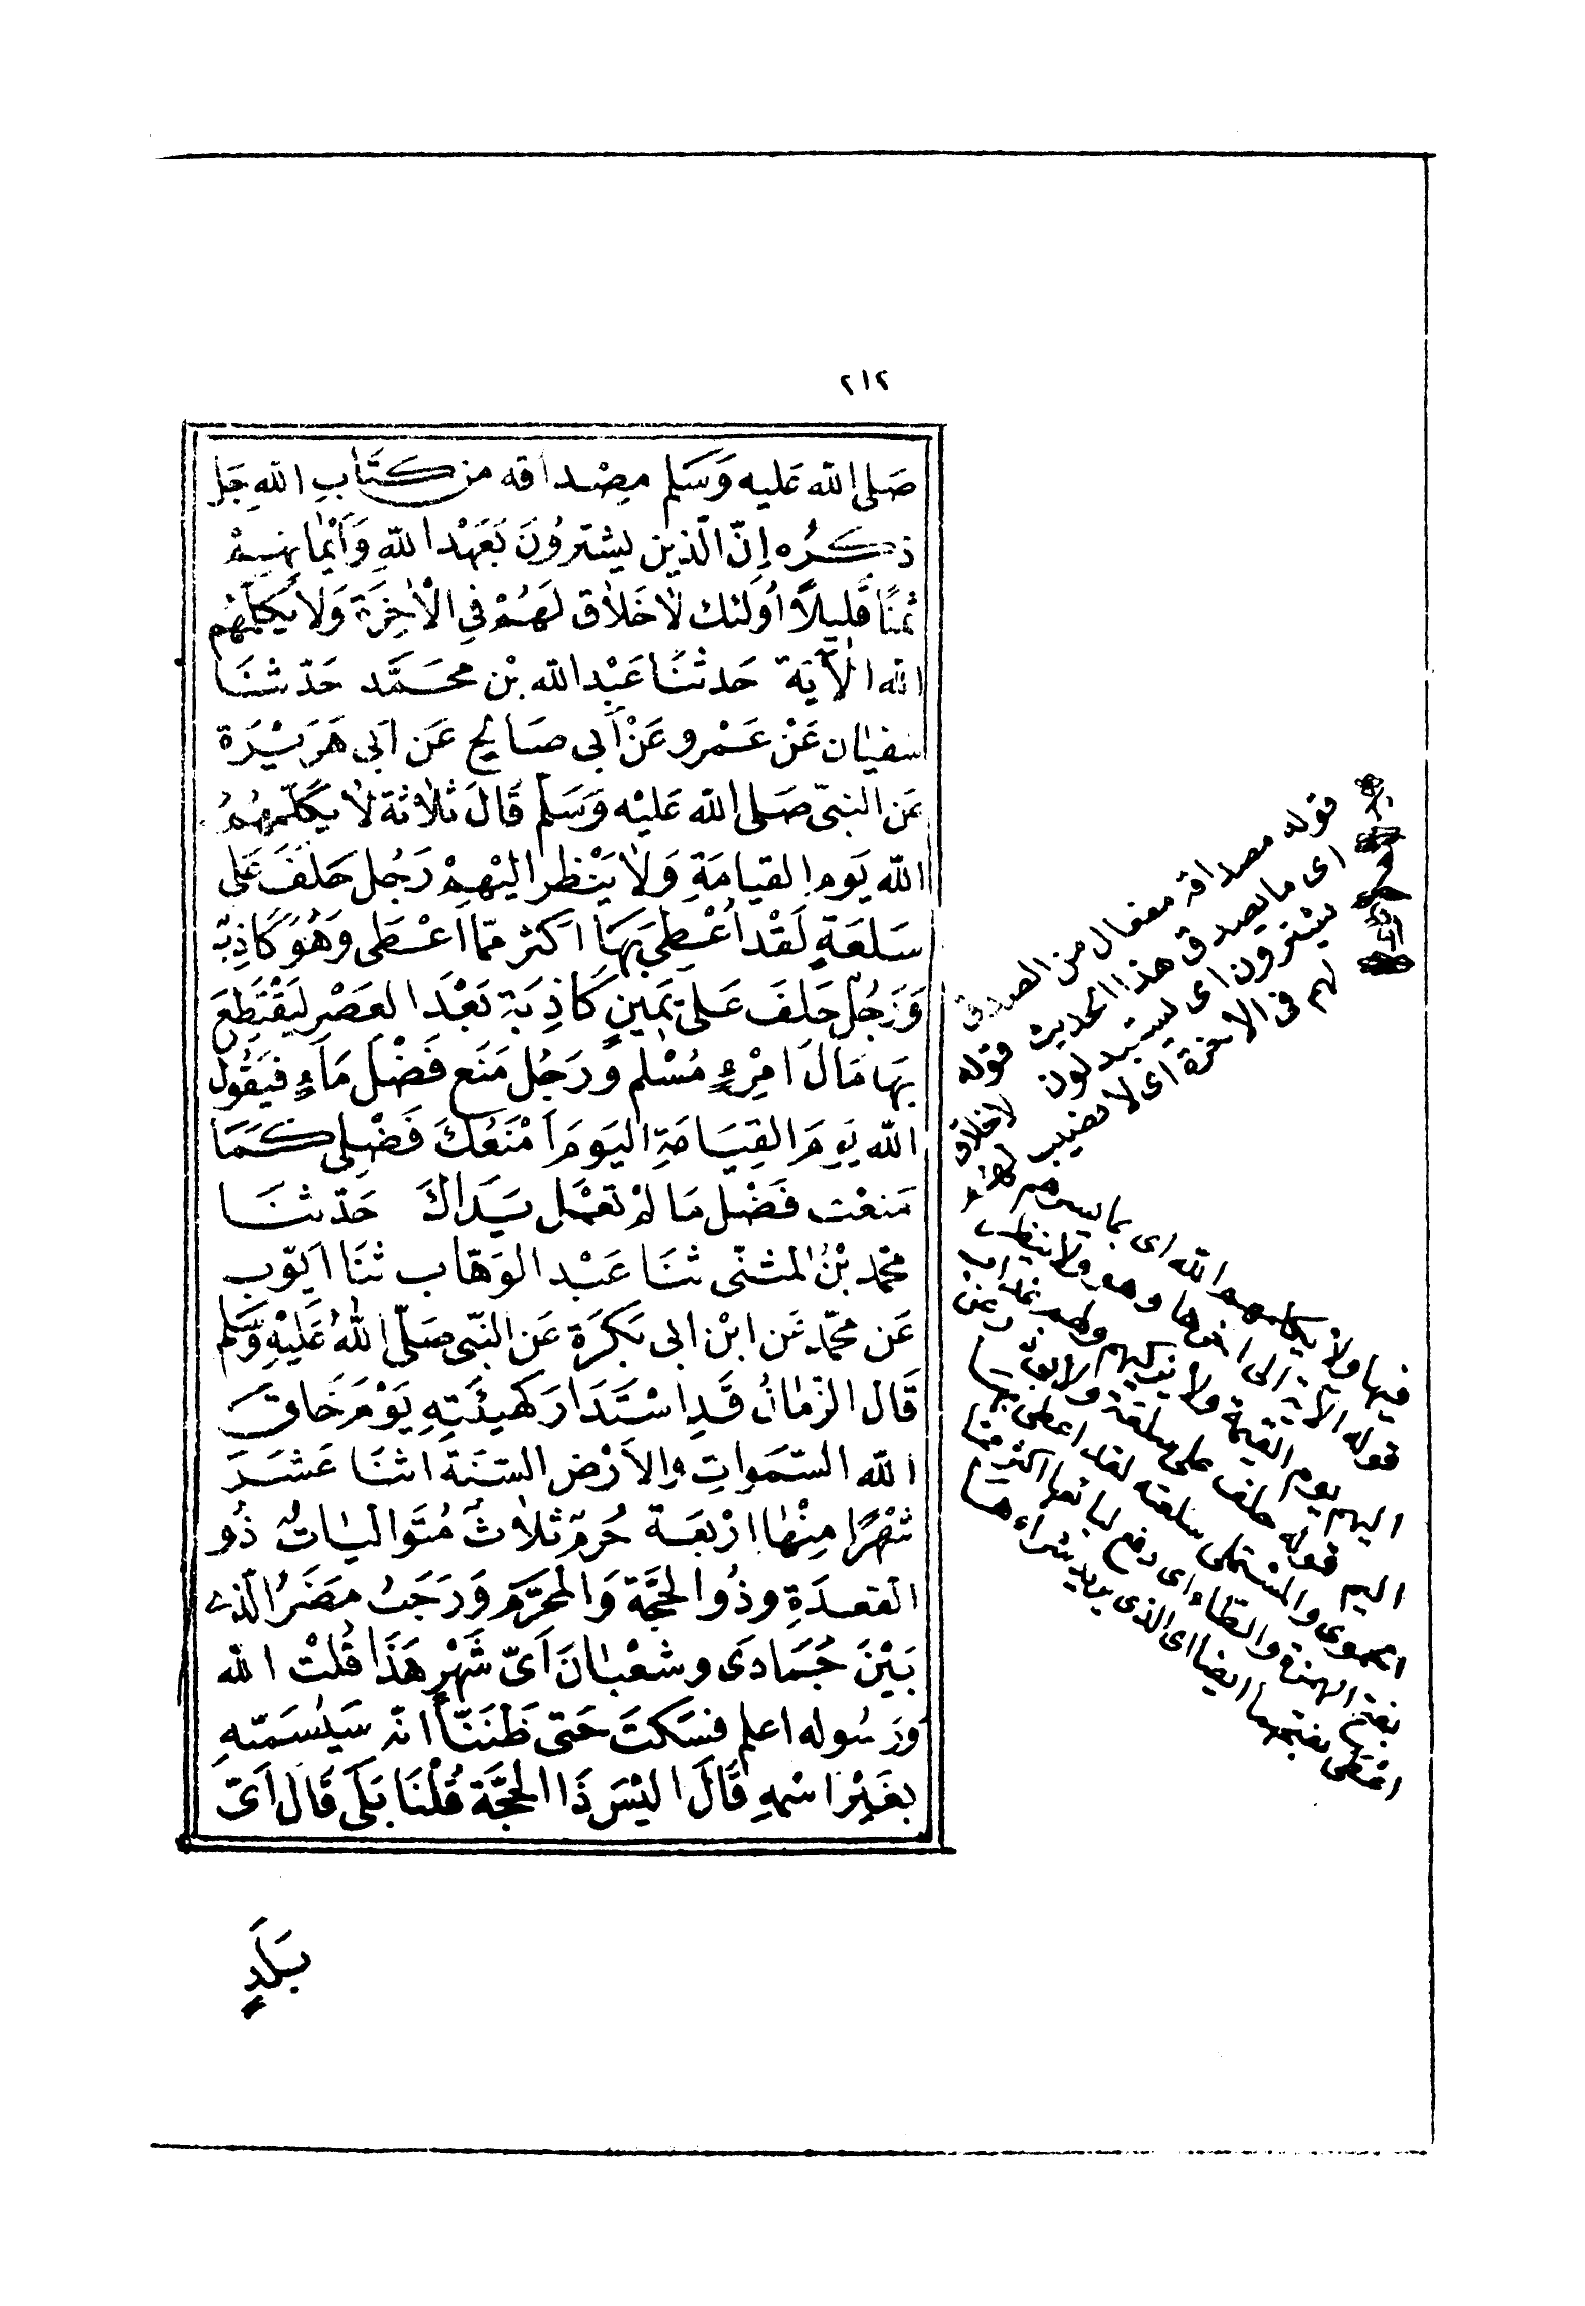 ٢١٢
صَلى الله عَليه وَسَلم مِصْداقه من كتَابِ الله جَل
ذكرُه إِنّ الّذين يشترُونَ بَعَهْد اللهِ وَأَيْمانهِمْ
ثمنًا قَلِيلاً أُولَئك لاَخَلاَق لَهُمْ فِي الْآخِرَة وَلاَ يُكَلِّمُهم
الله الْآيَة حَدثنَا عَبْد الله بْن محَمَّد حَدّثنَا
سفيان عَنْ عَمْرو عَنْ أَبي صَالِح عَن ابَى هَرَيْرَة
عَن النبىّ صَلى الله عَليْه وَسَلم قَالَ ثلاَثة لاَ يكَلّمهُمُ
الله يَوم القيامَةِ وَلاَ يَنْظر اليْهِمْ رَجُل حَلَفَ عَلى
سَلعَةٍ لَقْد أُعْطِىَ بَهَا اكثر ممّا اعْطَى وَهُوَ كَاذِبٌ
وَرَجُلٌ حَلَفَ عَلىَ يَمِينٍ كَاذِبَة بَعْدَ العَصْرِ لِيَقْتَطِعَ
بِهَا مَالَ امْرِءٍ مُسْلم وَرَجُل مَنَع فَضْلَ مَاءٍ فَيَقُول
الله يَومَ القِيَامَةِ اليَومَ امْنَعُكَ فَضْلِى كَمَا
مَنعْت فَضْل مَا لمْ تعْمَل يَدَاكَ حَدّثنَا
محَمّد بْنُ المثنّى ثنَا عَبْد الوَهّاب ثنَا ايّوب
عَن محَمّد عَن ابْن ابى بَكرَة عَن النبّى صَلّى اللهُ عَلَيْهِ وَسَلم
قَالَ الزّمَانُ قَدِ اسْتَدَارَ كَهيئَتِهِ يَوْمَ خَلق
الله السّمَواتِ والاَرْض السّنَة اثنَا عَشَرَ
شَهْرًا مِنْهَا ارْبعَة حُرم ثلاَث مُتَوَاليَاتٌ ذُو
القعدَةِ وذُو الحجَّة وَالمحَرّم وَرَجَبُ مضَرُ الّذى
بَيْنَ جُمَادَى وشعْبانَ اَىّ شَهْرٍ هَذَا قُلتْ الله
وَرَسُوله اعلم فسَكتَ حَتى ظَنَنّا انّه سَيُسَمّيهِ
بغَيْرِ اسْمهِ قَالَ اليْسَ ذَا الحجَّة قُلْنَا بَلَى قَال اَىّ
بَلَدٍ
قوله مصداقه مفعال من الصدق
اى ما يصدق هذا الحديث قوله
يشترون اى يستبدلون لاخلاق
لهم فى الاخرة اى لا نصيب لهم
فيها ولا يكلمهم الله اى بما يسرهم
قوله الاية الى اخرها وهو ولا ينظر
اليهم يوم القيمة ولا يزكيهم ولهم عذاب
اليم قوله حلف على سلعة
الحموى والمستملى سلعته لقد اعطى بها
بفتح الهمزة والطاء اى دفع لبائعها اكثر مما
اعطى بفتحهما ايضا اى الذى يريد شراءها